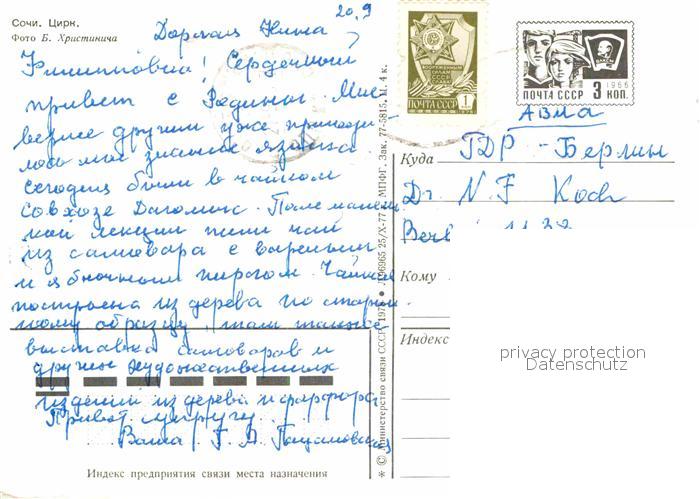 Сочи. Цирк.
Фото Б. Христинича
20.9
Дорогая Нина
Филипповна! Сердечный
привет с Родины. Мне
вернее другим уже пригоди-
лось мое знание языка.
Сегодня были в чайном
совхозе Дагомыс. После
лекции пили чай
из самовара с вареньем
и яблочным пирогом. Чайная
построена из дерева по старин-
ному образцу, там также
выставка самоваров и
других художественных
изделий из дерева и фарфора.
Привет супругу.
Ваша Г. А.
Индекс предприятия связи места назначения
* © Министерство связи СССР, 197 ● Л 96965 25/X-77 г. МПФГ. Зак. 77-5815. Ц. 4 к.
ПОЧТА СССР 1 КОП
1966
ПОЧТА СССР 3 КОП.
ВЛКСМ
АВИА
Куда ГДР - Берлин
Dr. N. F. Koch
Кому
Индекс
privacy protection
Datenschutz